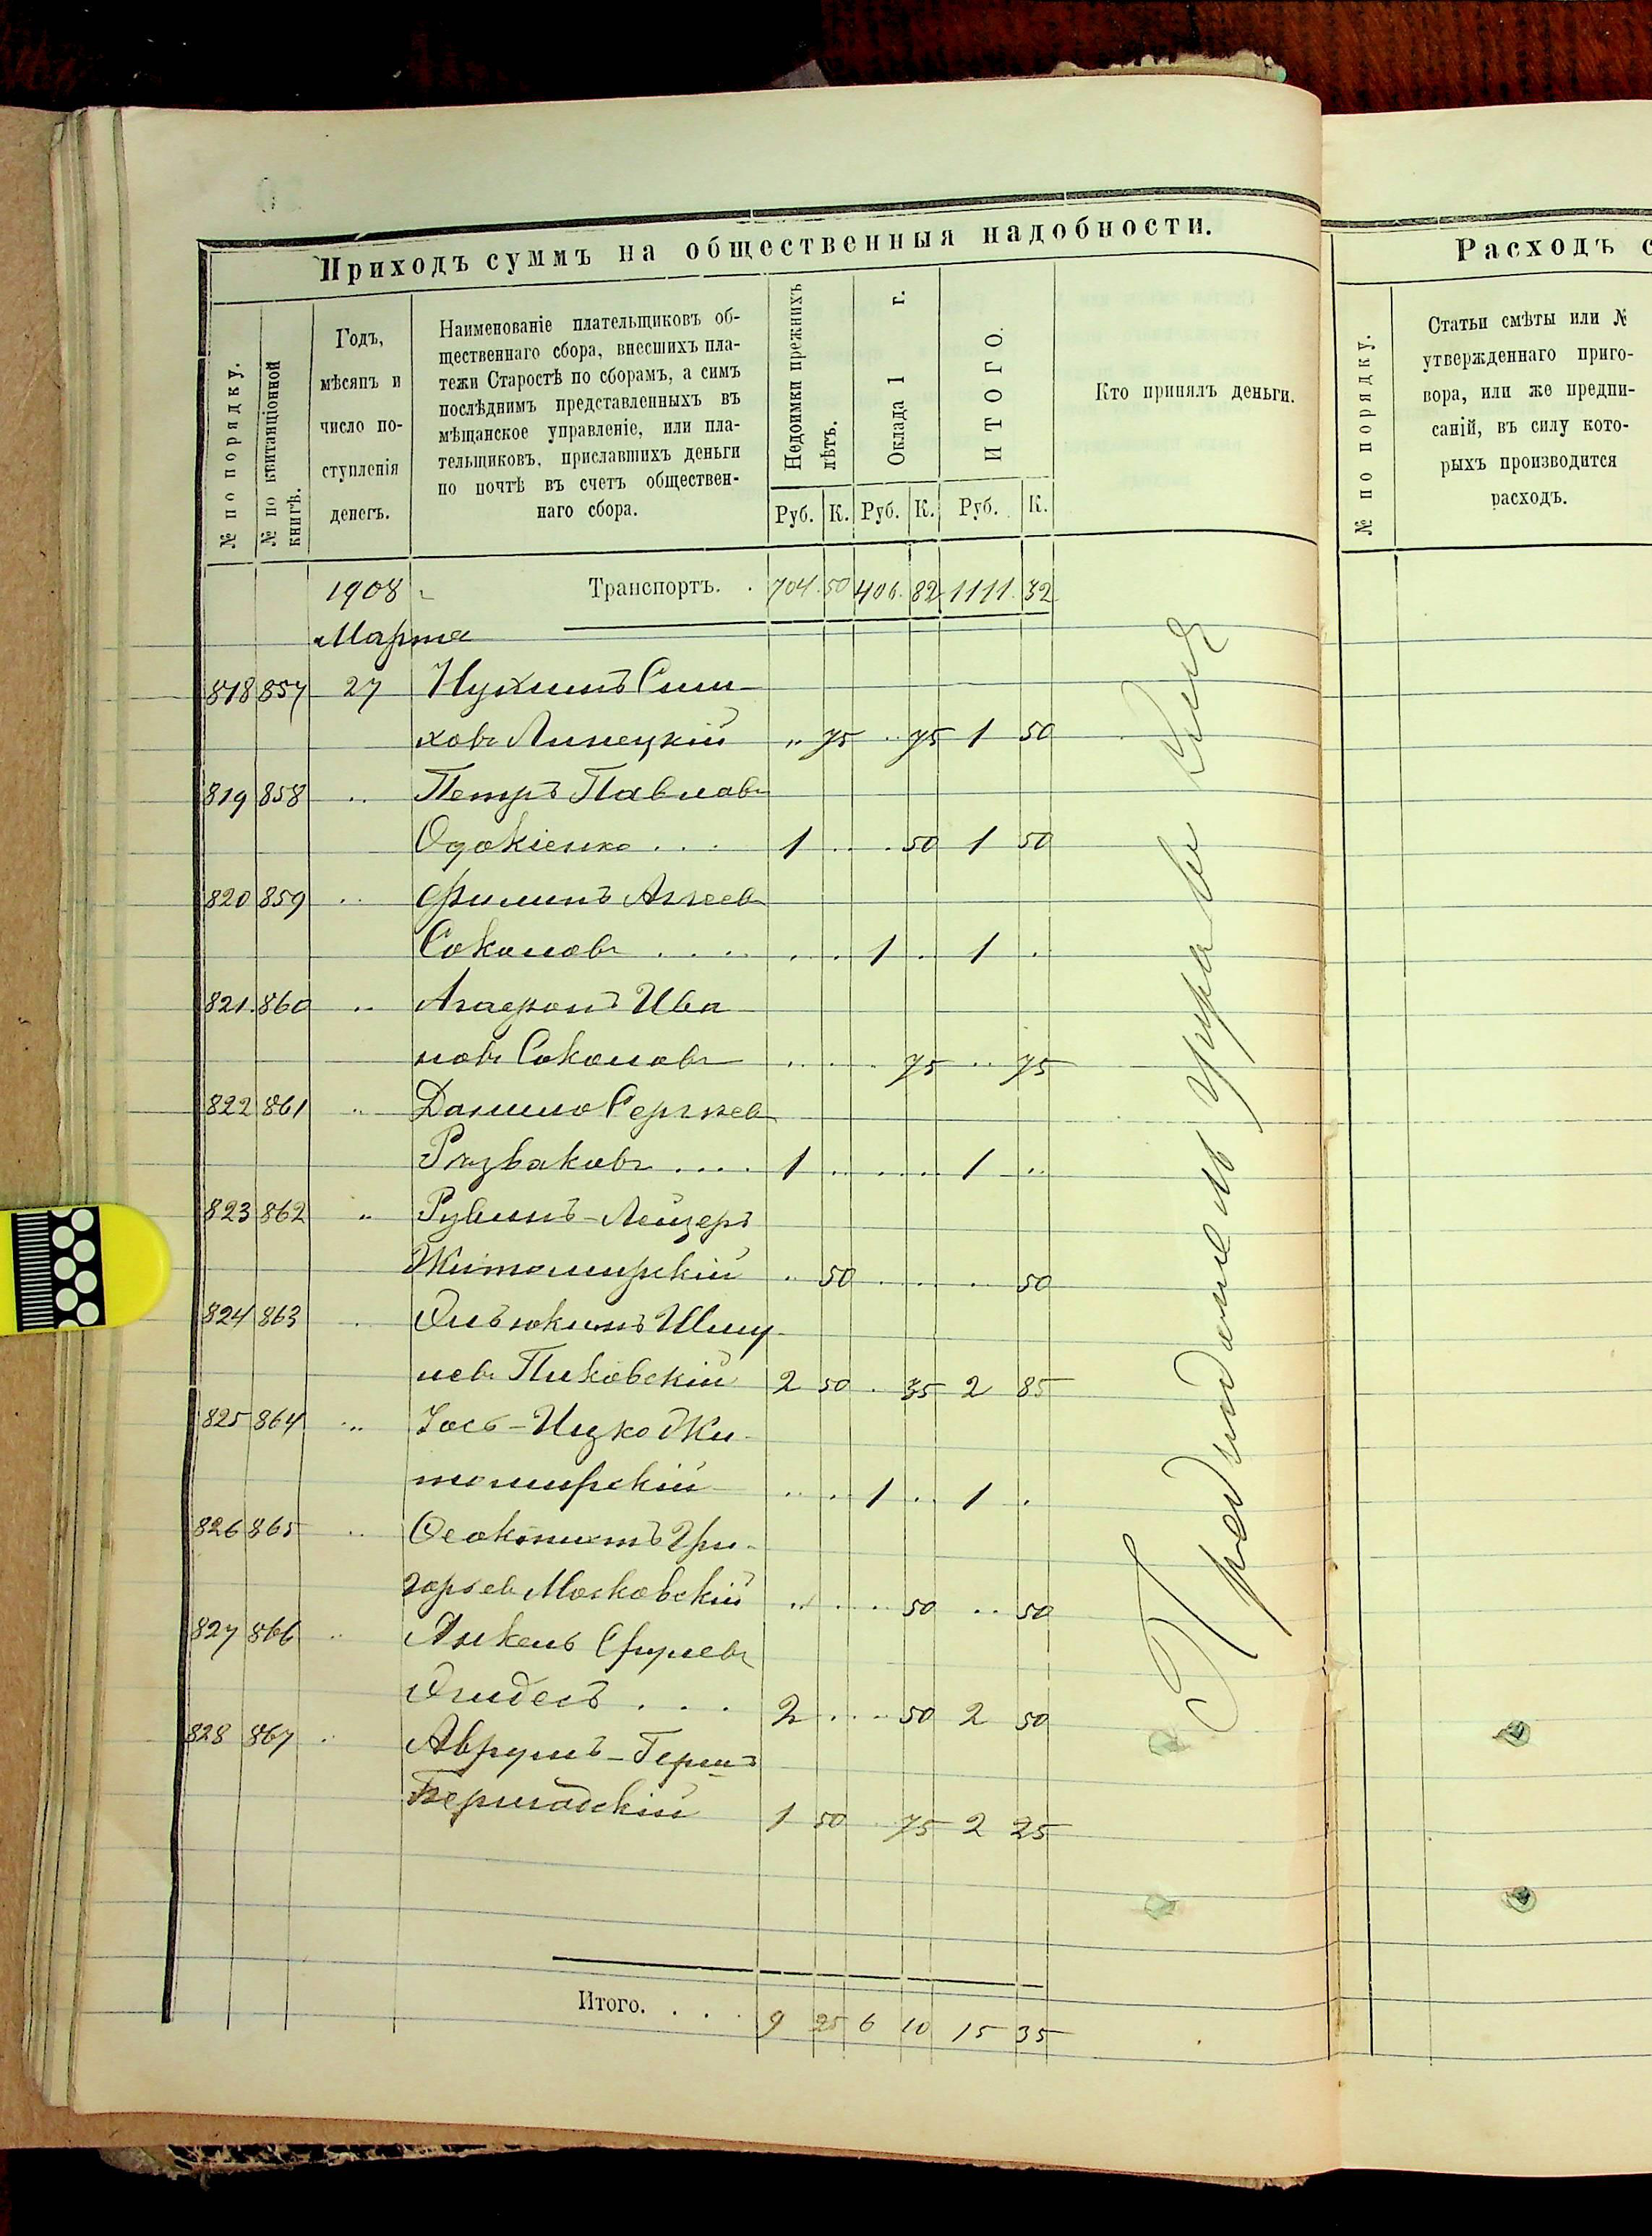 Приходъ суммъ на общественныя надобности.
№ по порядку.
№ по квитанціонной
книгѣ.
Годъ,
мѣсяцъ и
число по-
ступленія
денегъ.
Наименованіе плательщиковъ об-
щественнаго сбора, внесшихъ пла-
тежи Старостѣ по сборамъ, а симъ
послѣднимъ представленныхъ въ
мѣщанское управленіе, или пла-
тельщиковъ, приславшихъ деньги
по почтѣ въ счетъ обществен-
наго сбора.
Недоимки прежнихъ
лѣтъ.
Оклада 1 г.
ИТОГО.
Кто принялъ деньги.
Руб. К. Руб. К. Руб. К.
1908 Транспортъ. . 704. 50 406. 82 1111. 32
Марта
818 857 27 Нухимъ Сим-
ховъ Линецкій „ 75 .. 75 1 50
819 858 .. Петръ Павловъ
. . . 1 . . . 50 1 50
820 859 .. Филипъ Агеевъ
Соколовъ . . . . . . . 1 . . 1 .
821. 860 .. Агафонъ Ива
новъ Соколовъ . . . . 75 .. 75
822 861 .. Данило Сергѣев
.... 1 . . . . . 1 ..
823 862 „ Рувинъ-Лейзеръ
Житомирскій .. 50 . . . . . 50
824 863 . Шму-
левъ Пиковскій 2 50 . 35 2 85
825 864 .. Іось-Ицко Жи-
томирскій .. . 1 . . 1 .
826 865 .. Гри-
горьев Московскій .. . . . 50 .. 50
827 866 ..
. . . 2 . . .. 50 2 50
828 867 .. Аврумъ-Гершъ
Бершадскій 1 50 . 75 2 25
Итого. . . . 9 25 6 10 15 35
Расходъ с
№ по порядку.
Статьи смѣты или №
утвержденнаго приго-
вора, или же предпи-
саній, въ силу кото-
рыхъ производится
расходъ.